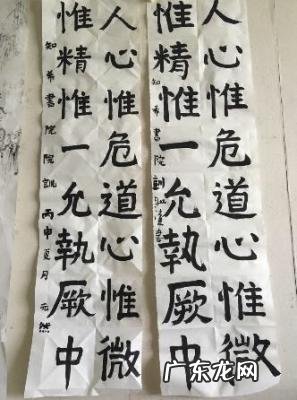 人心惟危道心惟微
惟精惟一允執厥中
知希書院訓
人心惟危道心惟微
惟精惟一允執厥中
知希書院院訓 丙申夏月
广东龙网